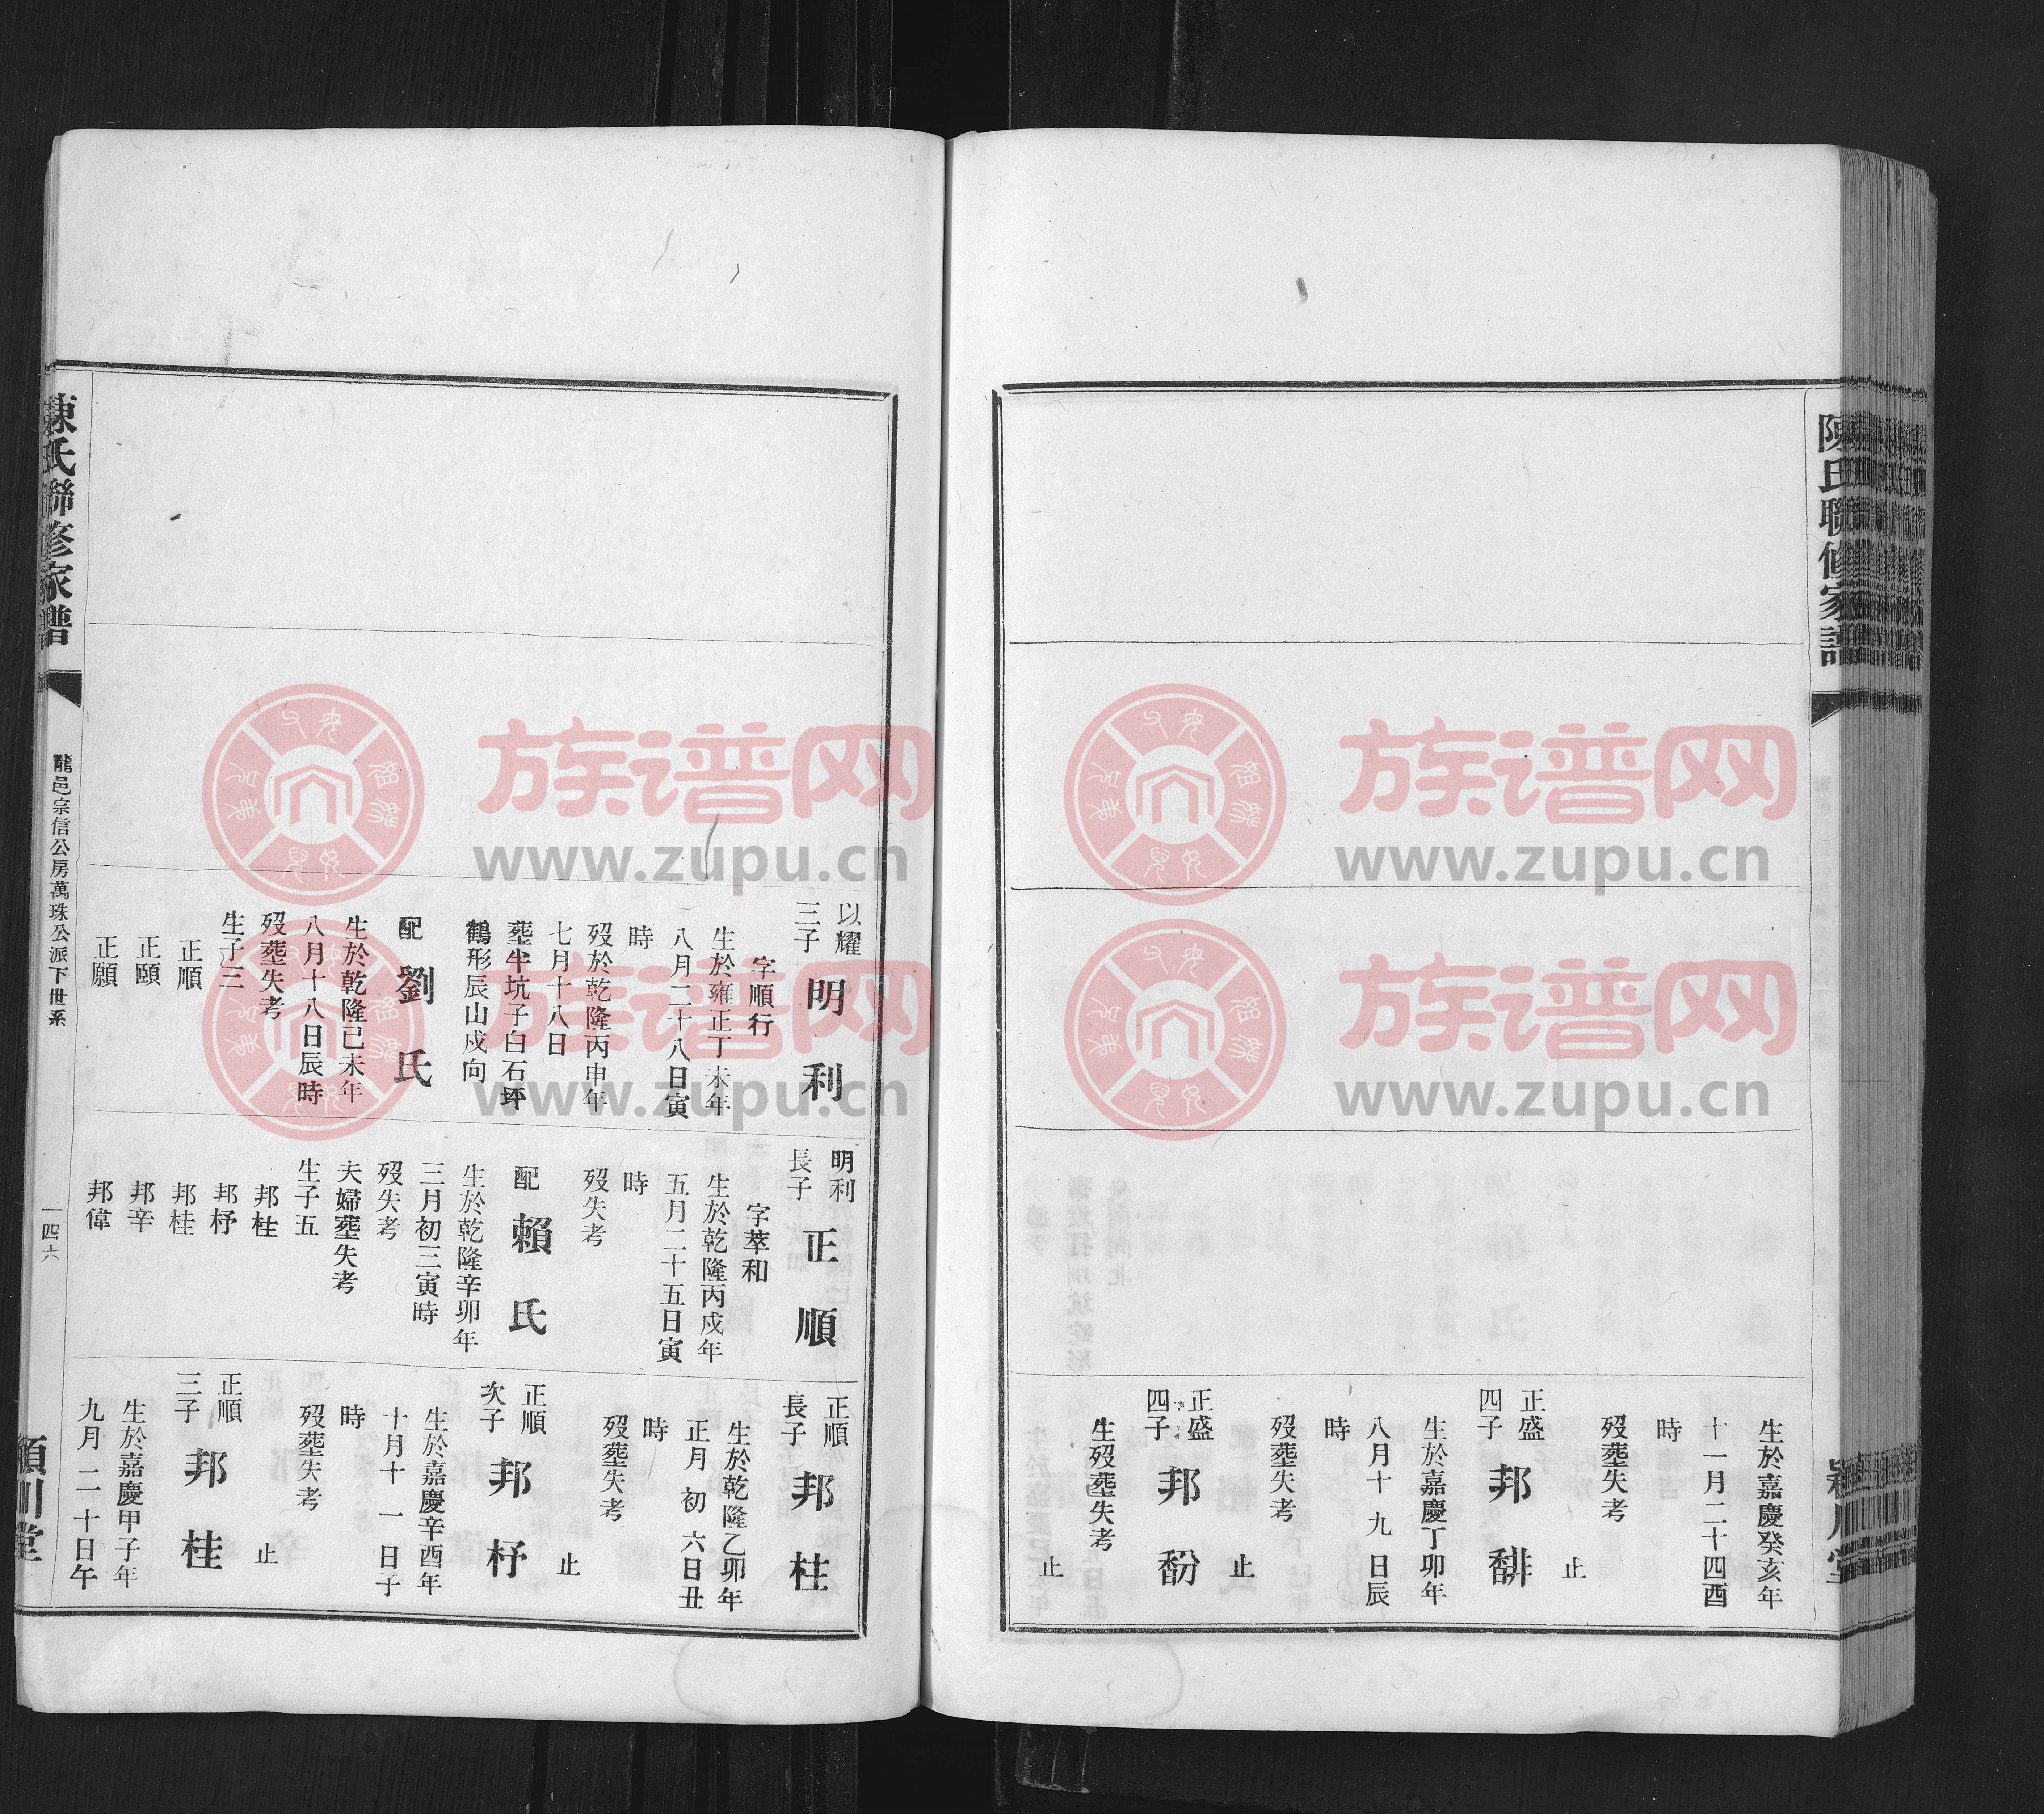 陳氏聯修家譜
潁川堂
生於嘉慶癸亥年
十一月二十四酉
時
歿葬失考
止
正盛
四子
邦馡
生於嘉慶丁卯年
八月十九日辰
時
歿葬失考
止
正盛
四子
邦馚
生歿葬失考
止
以耀
三子
明利
字順行
生於雍正丁未年
八月二十八日寅
時
歿於乾隆丙申年
七月十八日
葬半坑子白石坪
鶴形辰山戍向
配劉氏
生於乾隆己未年
八月十八日辰時
歿葬失考
生子三
正順
正頤
正願
明利
長子
正順
字萃和
生於乾隆丙戍年
五月二十五日寅
時
歿失考
配賴氏
生於乾隆辛卯年
三月初三寅時
歿失考
夫婦葬失考
生子五
邦柱
邦杍
邦桂
邦辛
邦偉
正順
長子
邦柱
生於乾隆乙卯年
正月初六日丑
時
歿葬失考
止
正順
次子
邦杍
生於嘉慶辛酉年
十月十一日子
時
歿葬失考
止
正順
三子
邦桂
生於嘉慶甲子年
九月二十日午
陳氏聯修家譜
龍邑宗信公房萬珠公派下世系
一四六
潁川堂
族谱网
www.zupu.cn
族谱网
www.zupu.cn
族谱网
www.zupu.cn
族谱网
www.zupu.cn